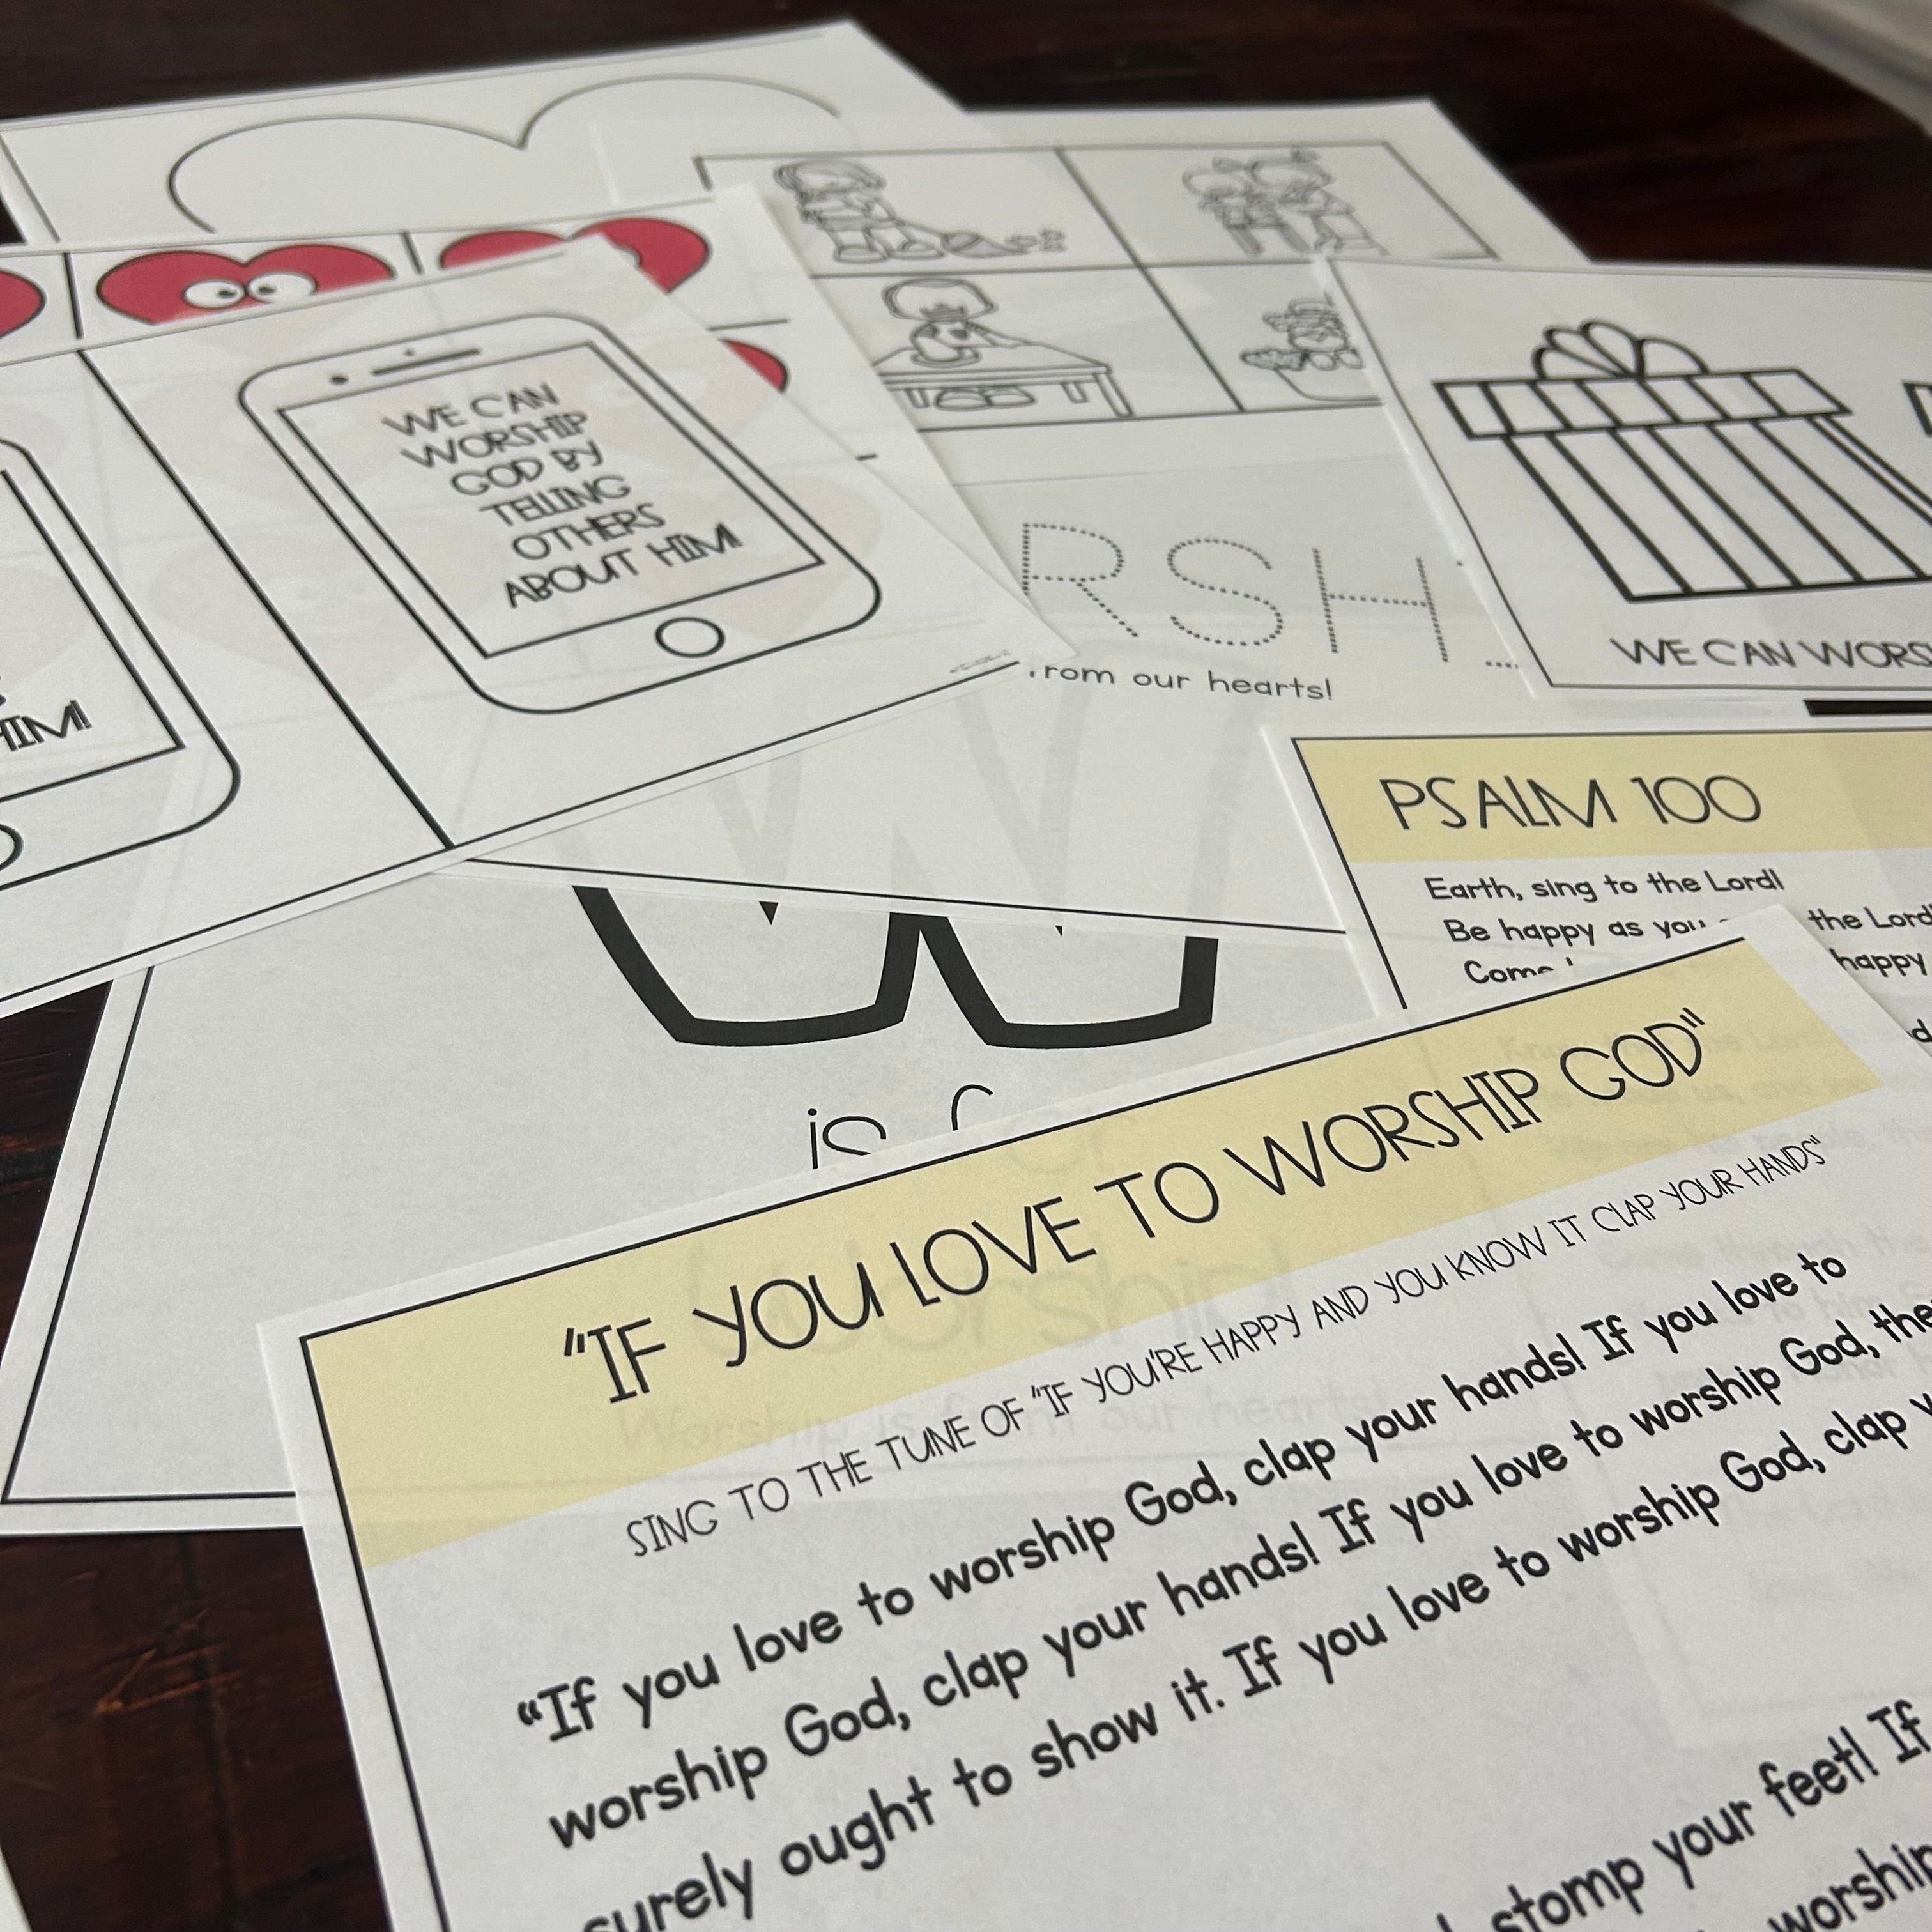 WE CAN
WORSHIP
GOD BY
TELLING
OTHERS
ABOUT HIM!
HIM!
RSH
from our hearts!
WE CAN
PSALM 100
Earth, sing to the Lord!
Be happy as you the Lord
Come happy
is
"IF YOU LOVE TO WORSHIP GOD"
SING TO THE TUNE OF "IF YOU'RE HAPPY AND YOU KNOW IT CLAP YOUR HANDS"
"If you love to worship God, clap your hands! If you love to
worship God, clap your hands! If you love to worship God,
surely ought to show it. If you love to worship God, clap
stomp your feet! If
worship
Worship is from our hearts!